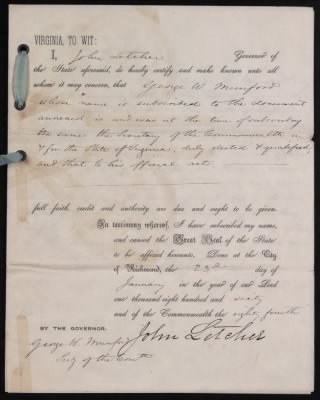 VIRGINIA, TO WIT:
I, John Letcher Governor of
the State aforesaid, do hereby certify and make known unto all
whom it may concern, that George W. Munford
whose name is subscribed to the document
annexed is and was at the time of subscribing
the same the Secretary of the Commonwealth in
& for the State of Virginia, duly elected & qualified,
and that to his official acts
full faith, credit and authority are due and ought to be given.
In testimony whereof, I have subscribed my name,
and caused the Great Seal of the State
to be affixed hereunto. Done at the City
of Richmond, the 23rd day of
January in the year of our Lord
one thousand eight hundred and sixty
and of the Commonwealth the eighty fourth
BY THE GOVERNOR. John Letcher
George W. Munford
Secy of the Comth